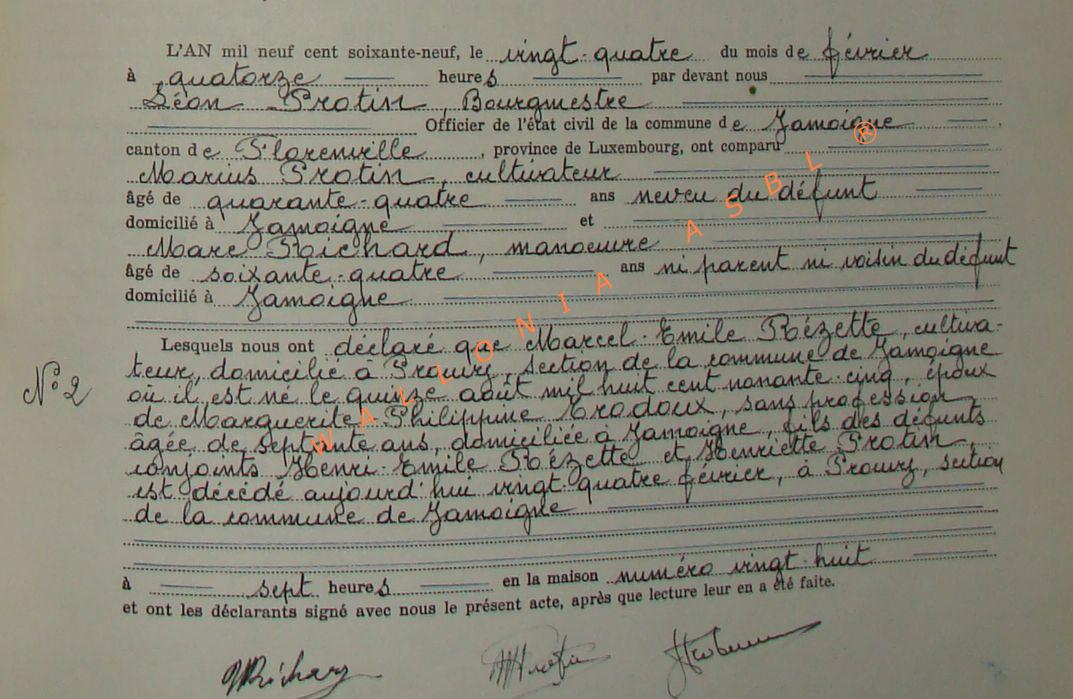 L'AN mil neuf cent soixante-neuf, le vingt-quatre du mois de février
à quatorze heures par devant nous
Léon Protin, Bourgmestre
Officier de l'état civil de la commune de Jamoigne,
canton de Florenville, province de Luxembourg, ont comparu
Marius Protin, cultivateur
âgé de quarante-quatre ans neveu du défunt
domicilié à Jamoigne et
Marc Richard, manoeuvre
âgé de soixante-quatre ans ni parent ni voisin du défunt
domicilié à Jamoigne
Lesquels nous ont déclaré que Marcel-Emile Rézette, cultiva-
teur, domicilié à Prouvy, section de la commune de Jamoigne
où il est né le quinze août mil huit cent nonante-cinq, époux
de Marguerite Philippine Trodoux, sans profession,
âgée de septante ans, domiciliée à Jamoigne, fils des défunts
conjoints Henri-Emile Rézette et Henriette Protin,
est décédé aujourd'hui vingt-quatre février, à Prouvy, section
de la commune de Jamoigne
à sept heures en la maison numéro vingt-huit
et ont les déclarants signé avec nous le présent acte, après que lecture leur en a été faite.
N° 2
WALLONIA ASBL ®
MRichard